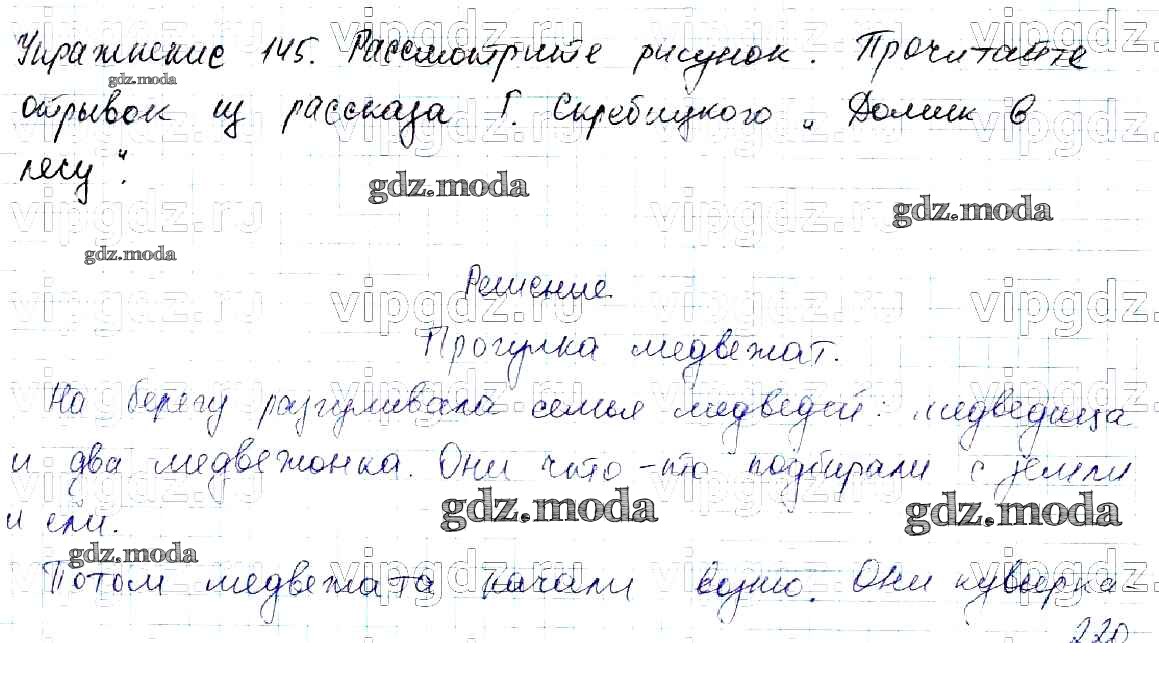 Упражнение 145. Рассмотрите рисунок. Прочитайте
gdz.moda
отрывок из рассказа Г. Скребицкого „Домик в
лесу“.
gdz.moda
gdz.moda
vipgdz.ru
gdz.moda
Решение.
vipgdz.ru
Прогулка медвежат.
На берегу разгуливала семья медведей: медведица
и два медвежонка. Они что-то подбирали с земли
и ели.
gdz.moda
gdz.moda
gdz.moda
Потом медвежата начали возню. Они кувырка-
220